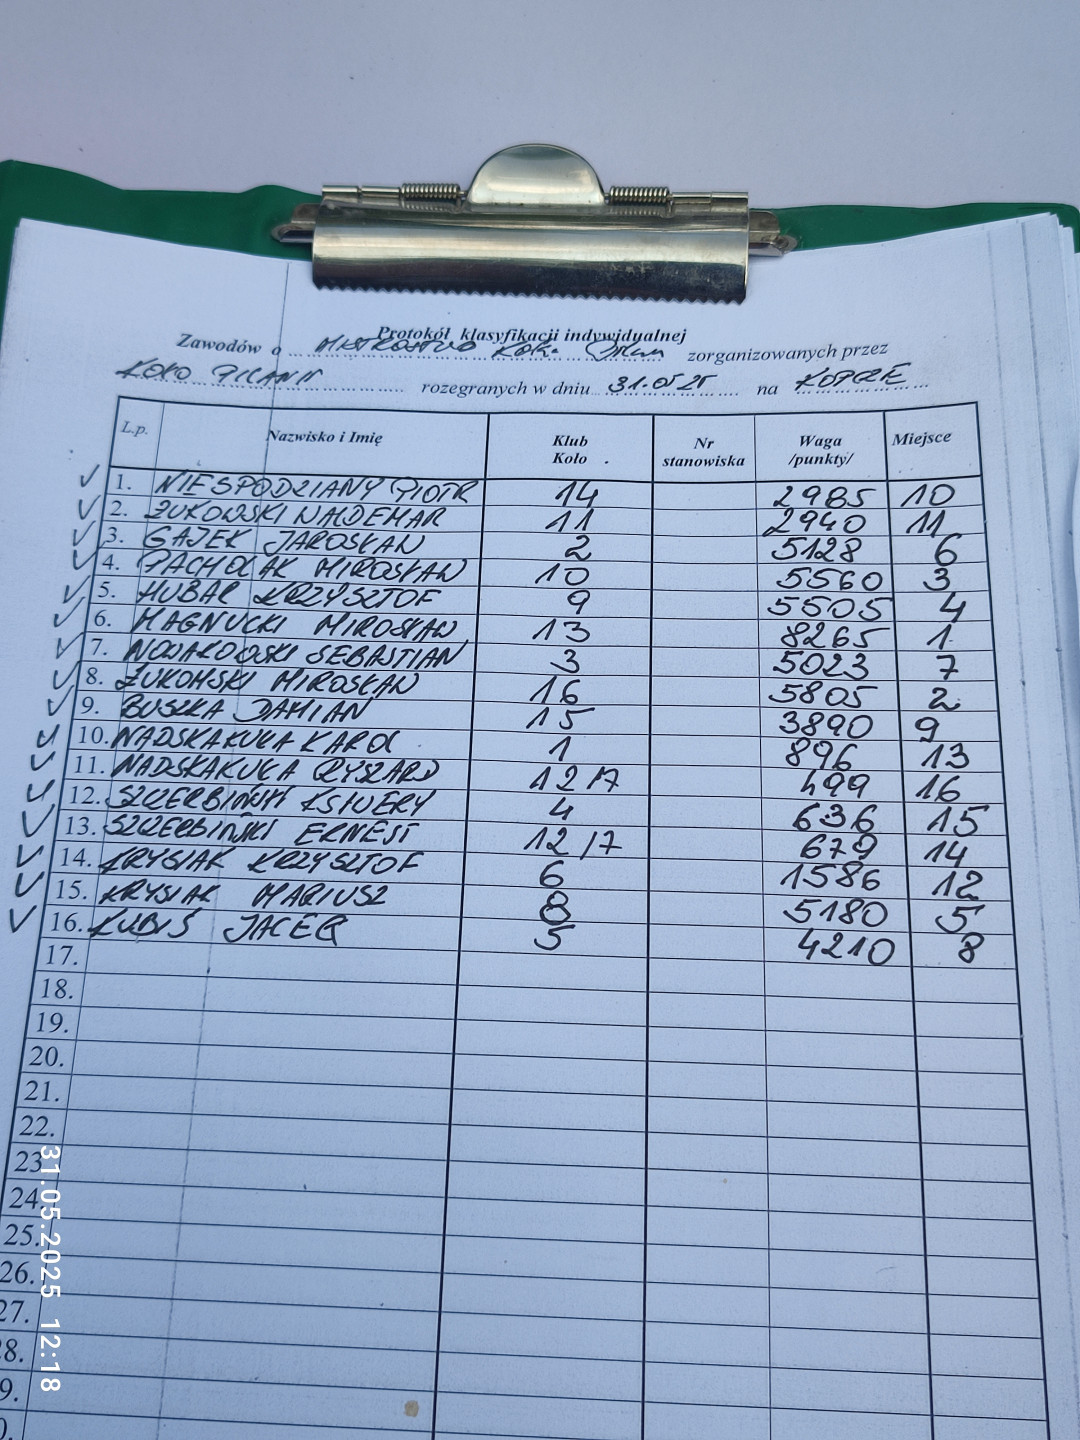 Protokół klasyfikacji indywidualnej
Zawodów o MISTROSTWO zorganizowanych przez
KOŁO rozegranych w dniu 31.05.25 na
L.p. Nazwisko i Imię Klub Koło Nr stanowiska Waga /punkty/ Miejsce
1. NIESPODZIANY PIOTR 14 2985 10
2. ŻUKOWSKI WALDEMAR 11 2940 11
3. GAJEK JAROSŁAW 2 5128 6
4. PACHOLAK MIROSŁAW 10 5560 3
5. HUBAR KRZYSZTOF 9 5505 4
6. MAGNUCKI MIROSŁAW 13 8265 1
7. NOWAKOWSKI SEBASTIAN 3 5023 7
8. ŻUKOWSKI MIROSŁAW 16 5805 2
9. BUSZKA DAMIAN 15 3890 9
10. NADSKAKUŁA KAROL 1 896 13
11. NADSKAKUŁA RYSZARD 12/7 499 16
12. SZCZERBIŃSKI KSAWERY 4 636 15
13. SZCZERBIŃSKI ERNEST 12/7 679 14
14. KRYSIAK KRZYSZTOF 6 1586 12
15. KRYSIAK MARIUSZ 8 5180 5
16. KUBIŚ JACEK 5 4210 8
17.
18.
19.
20.
21.
22.
23.
24.
25.
26.
27.
28.
31.05.2025 12:18